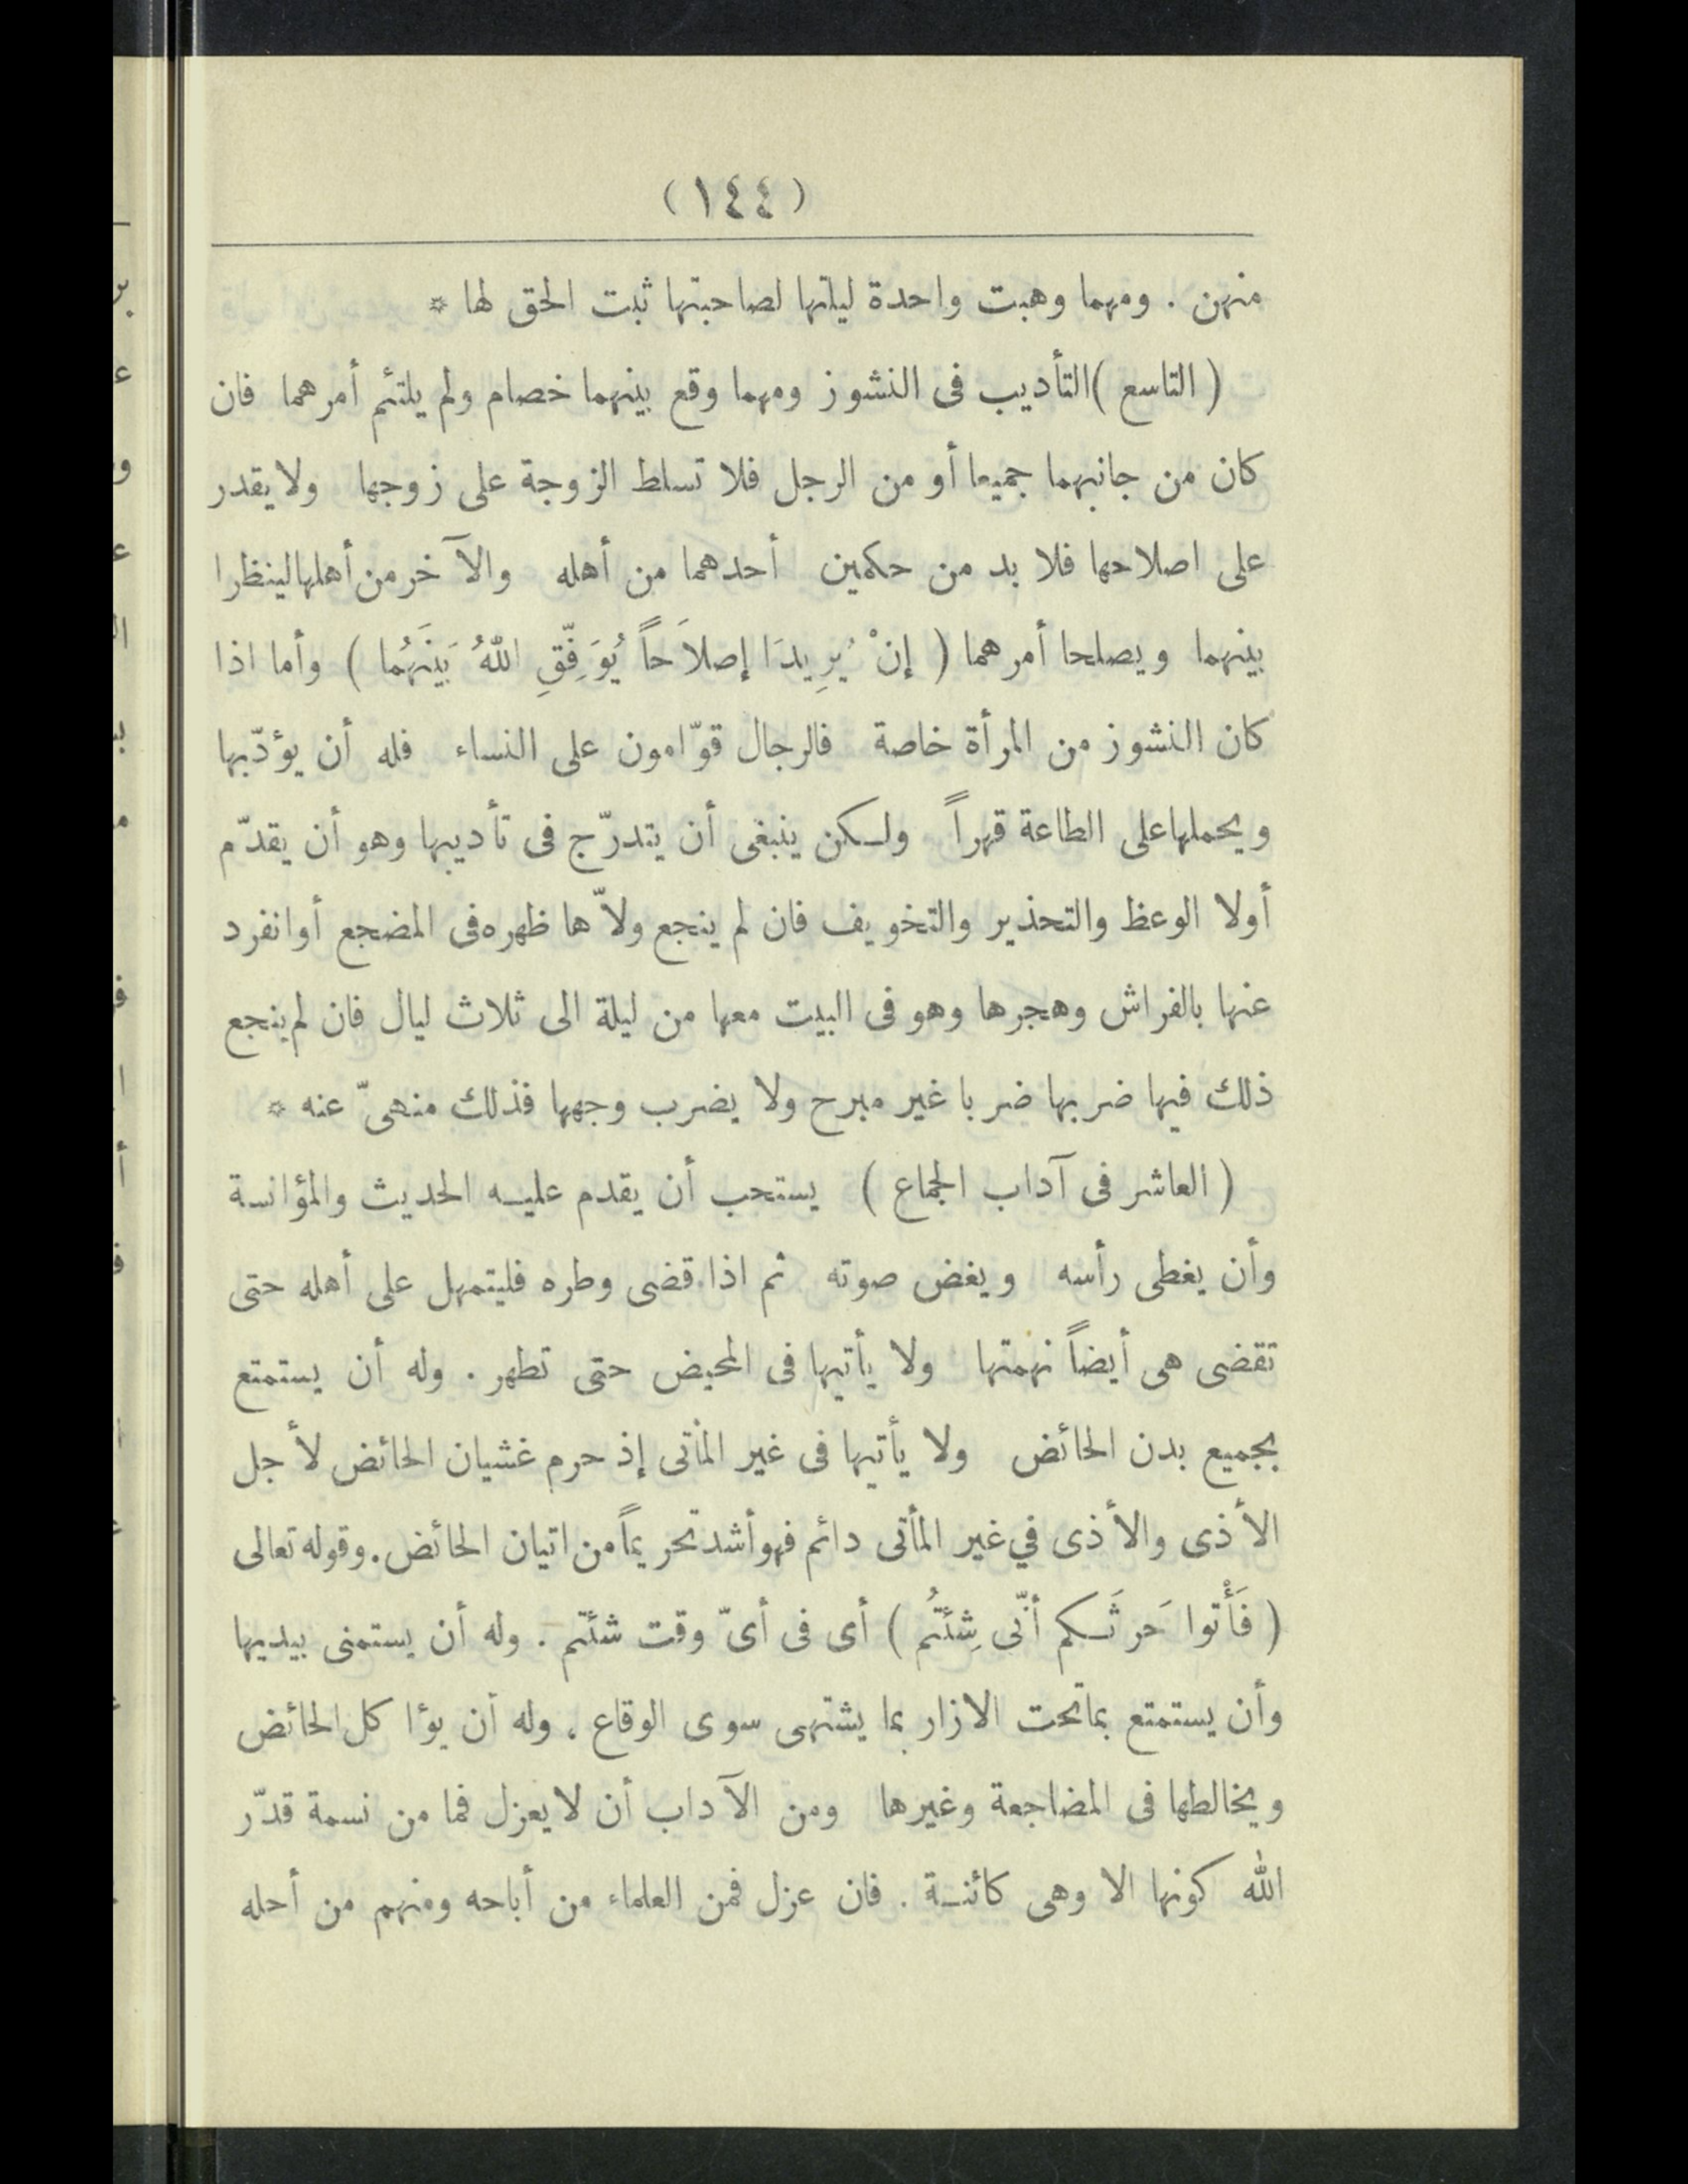 (١٤٤)
منهن . ومهما وهبت واحدة ليلتها لصاحبتها ثبت الحق لها *
( التاسع )التأديب فى النشوز ومهما وقع بينهما خصام ولم يلتئم أمرهما فان
كان من جانبهما جميعا أو من الرجل فلا تسلط الزوجة على زوجها ولا يقدر
على اصلاحها فلا بد من حكمين أحدهما من أهله والآخر من أهلها لينظرا
بينهما ويصلحا أمرهما ( إنْ يُرِيدَا إصلاَحاً يُوَفِّقِ اللّٰهُ بَينَهُما ) وأما اذا
كان النشوز من المرأة خاصة فالرجال قوّامون على النساء فله أن يؤدّبها
ويحملها على الطاعة قهراً ولكن ينبغى أن يتدرّج فى تأديبها وهو أن يقدّم
أولا الوعظ والتحذير والتخويف فان لم ينجع ولاّها ظهره فى المضجع أو انفرد
عنها بالفراش وهجرها وهو فى البيت معها من ليلة الى ثلاث ليال فان لم ينجع
ذلك فيها ضربها ضربا غير مبرح ولا يضرب وجهها فذلك منهىّ عنه *
( العاشر فى آداب الجماع ) يستحب أن يقدم عليه الحديث والمؤانسة
وأن يغطى رأسه ويغض صوته ثم اذا قضى وطره فليتمهل على أهله حتى
تقضى هى أيضاً نهمتها ولا يأتيها فى المحيض حتى تطهر . وله أن يستمتع
بجميع بدن الحائض ولا يأتيها فى غير المأتى إذ حرم غشيان الحائض لأجل
الأذى والأذى في غير المأتى دائم فهو أشد تحريماً من اتيان الحائض . وقوله تعالى
( فَأْتوا حَرثَكم أنّى شِئتُم ) أى فى أىّ وقت شئتم . وله أن يستمنى بيديها
وأن يستمتع بما تحت الازار بما يشتهى سوى الوقاع . وله أن يؤاكل الحائض
ويخالطها فى المضاجعة وغيرها ومن الآداب أن لا يعزل فما من نسمة قدّر
الله كونها الا وهى كائنة . فان عزل فمن العلماء من أباحه ومنهم من أحله